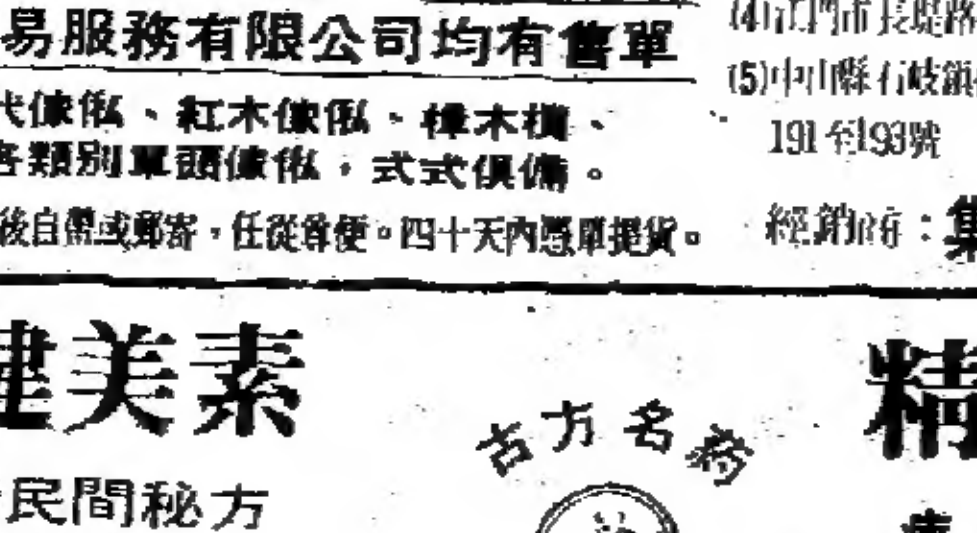 易服務有限公司均有售單
代傢俬、紅木傢俬、樟木櫃、
各類別單頭傢俬，式式俱備。
後自帶或郵寄，任從尊便。四十天內憑單提貨。
(4)江門市長堤路
(5)中山縣石岐鎮
191至193號
經銷商：集
健美素
民間秘方
古方名药
精